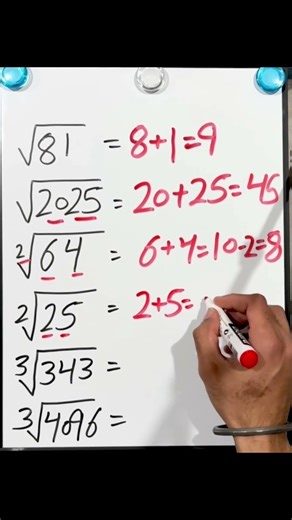 √81 = 8+1=9
√2025 = 20+25=45
²√64 = 6+4=10-2=8
²√25 = 2+5=
³√343 =
³√4096 =